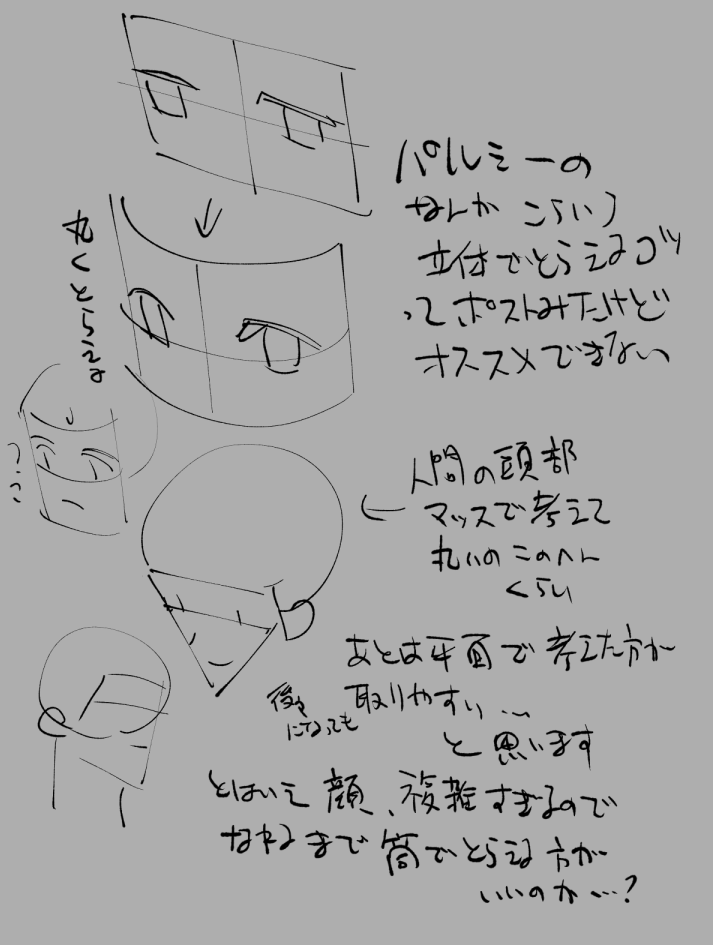 パルミーの
なんか こういう
立体でとらえるゴツ
ってポストみたけど
オススメできない
丸くとらえる
人間の頭部
マッスで考えて
丸いのこのへん
くらい
あとは平面で考えた方が
後々
になっても
取りやすい…
と思います
とはいえ顔、複雑すぎるので
なれるまで筒でとらえる方が
いいのか…?